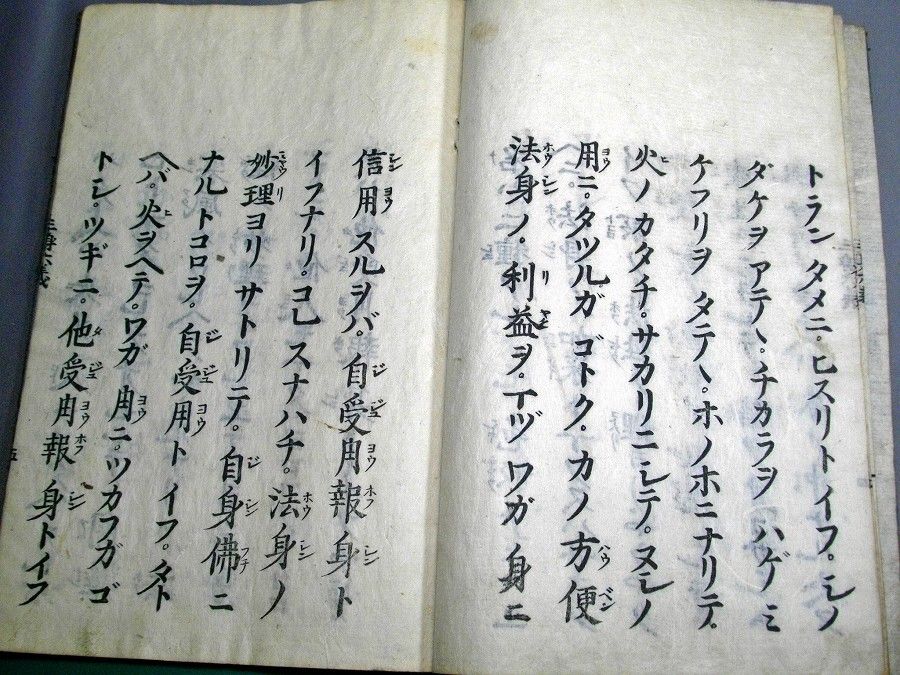 トラン タメニ。ヒスリト イフ。シノ
ダケヲ アテヽ。チカラヲ ハゲミ
ケフリヲ タテヽ。ホノホニナリテ。
火ノ カタチ。サカリニシテ。ヌシノ
用ニ。タツルガ ゴトク。カノ 方便
法身ノ。利益ヲ。マヅ ワガ 身ニ
信用 スルヲバ。自受用報身ト
イフナリ。コレ スナハチ。法身ノ
妙理ヨリ サトリニテ。自身佛ニ
ナル トコロヲ。自受用ト イフ。タト
ヘバ。火ヲヘテ。ワガ 用ニ。ツカフガ ゴ
トシ。ツギニ。他受用報身トイフ